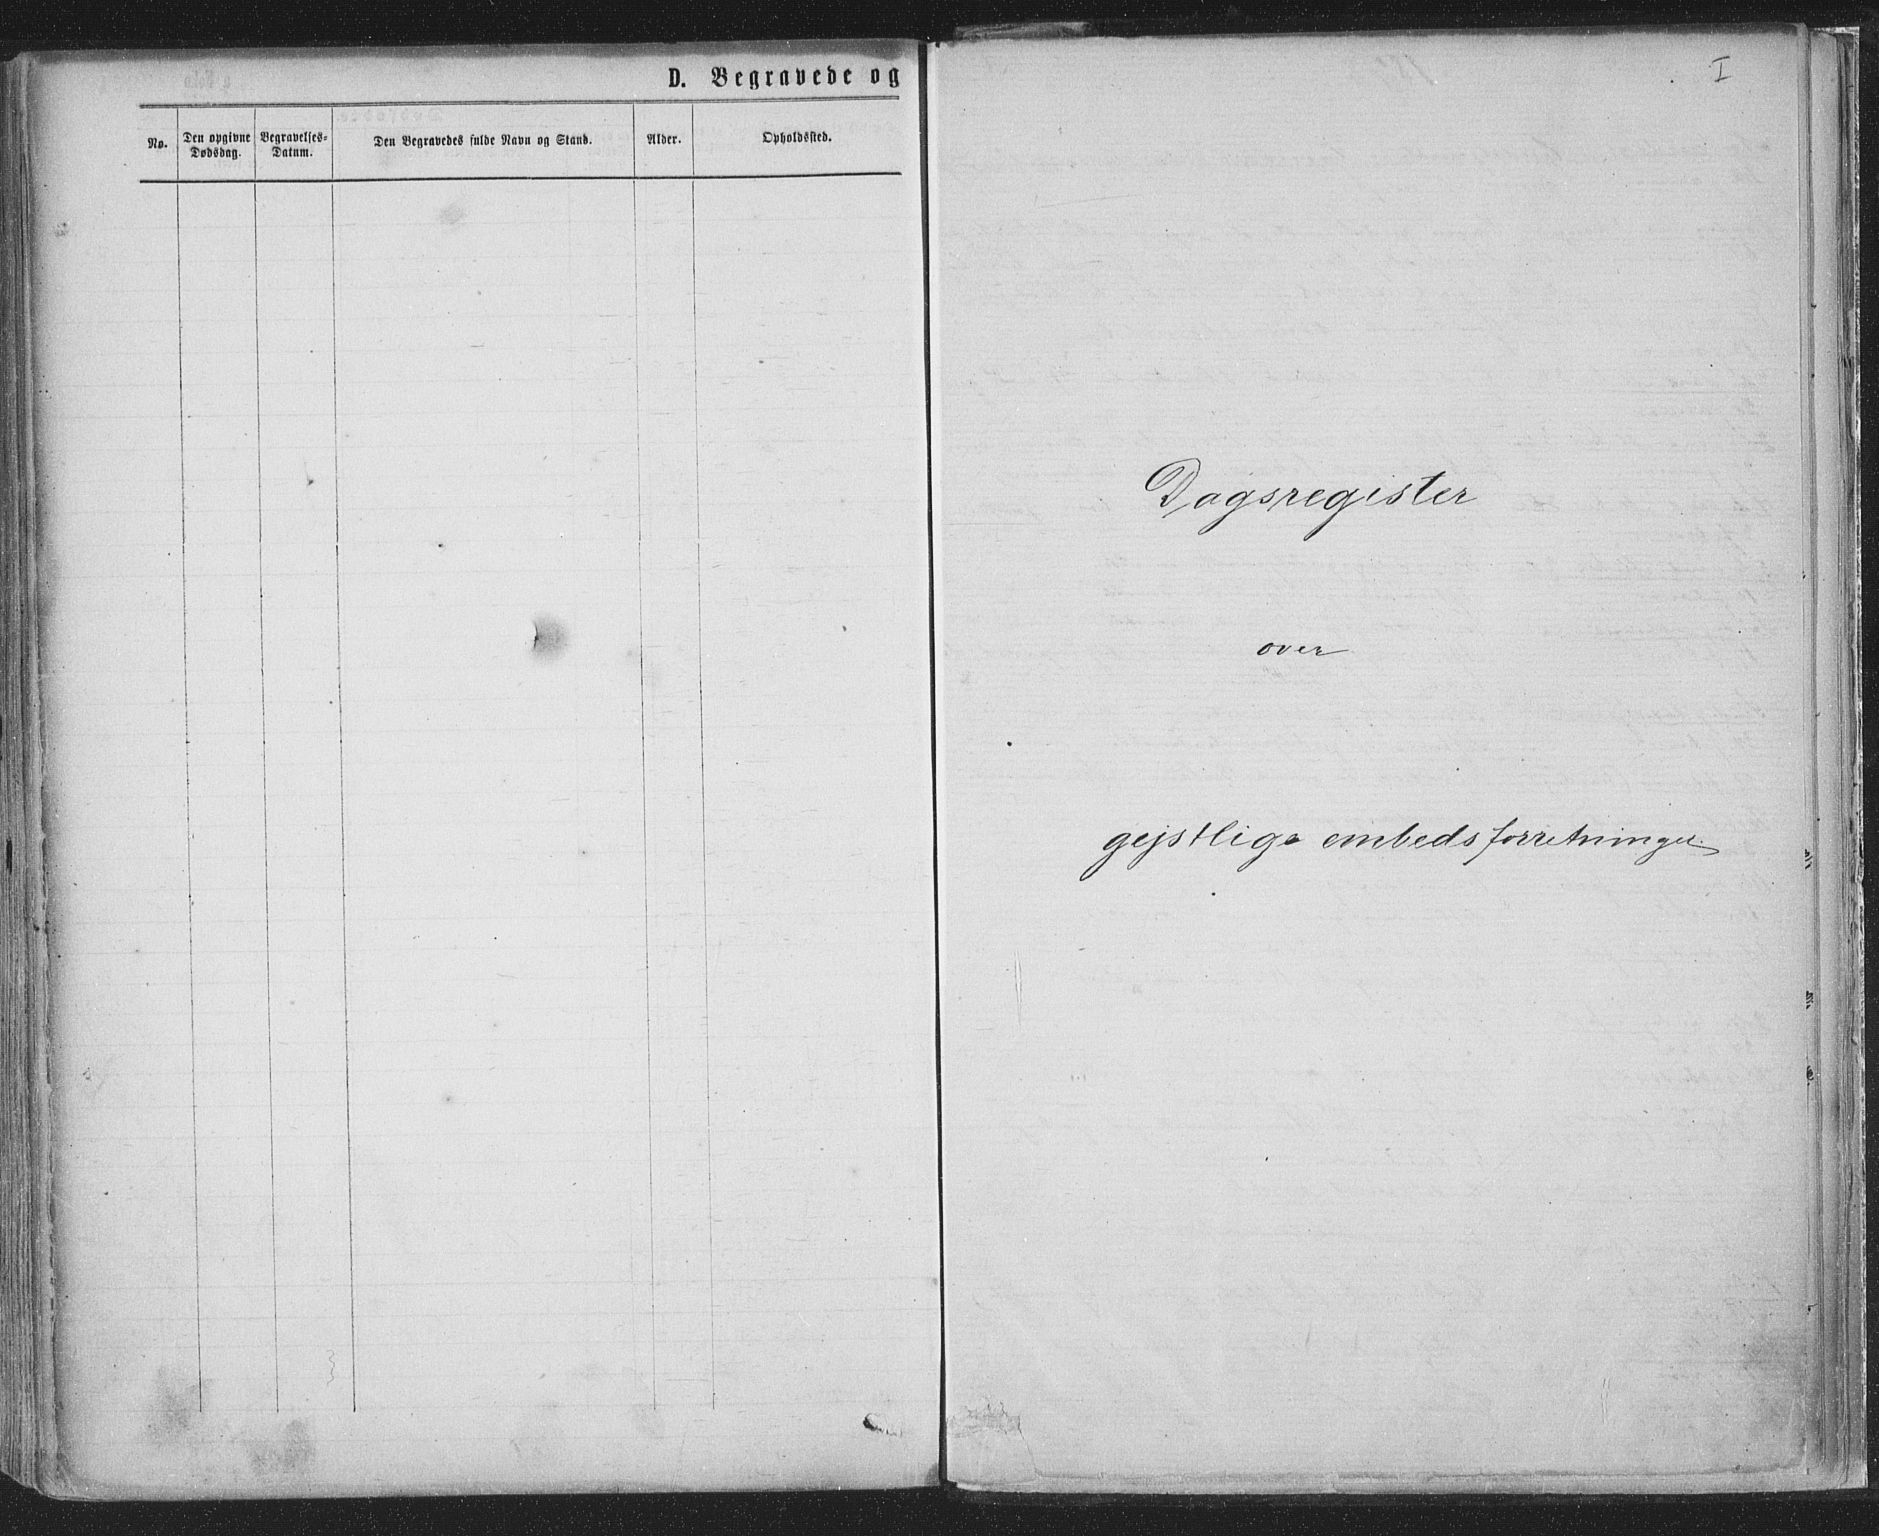 D. Begravede og
No.
Den opgivne Dødsdag.
Begravelses-Datum.
Den Begravedes fulde Navn og Stand.
Alder.
Opholdssted.
I
Dagsregister
over
gejstlige embedsforretninger.